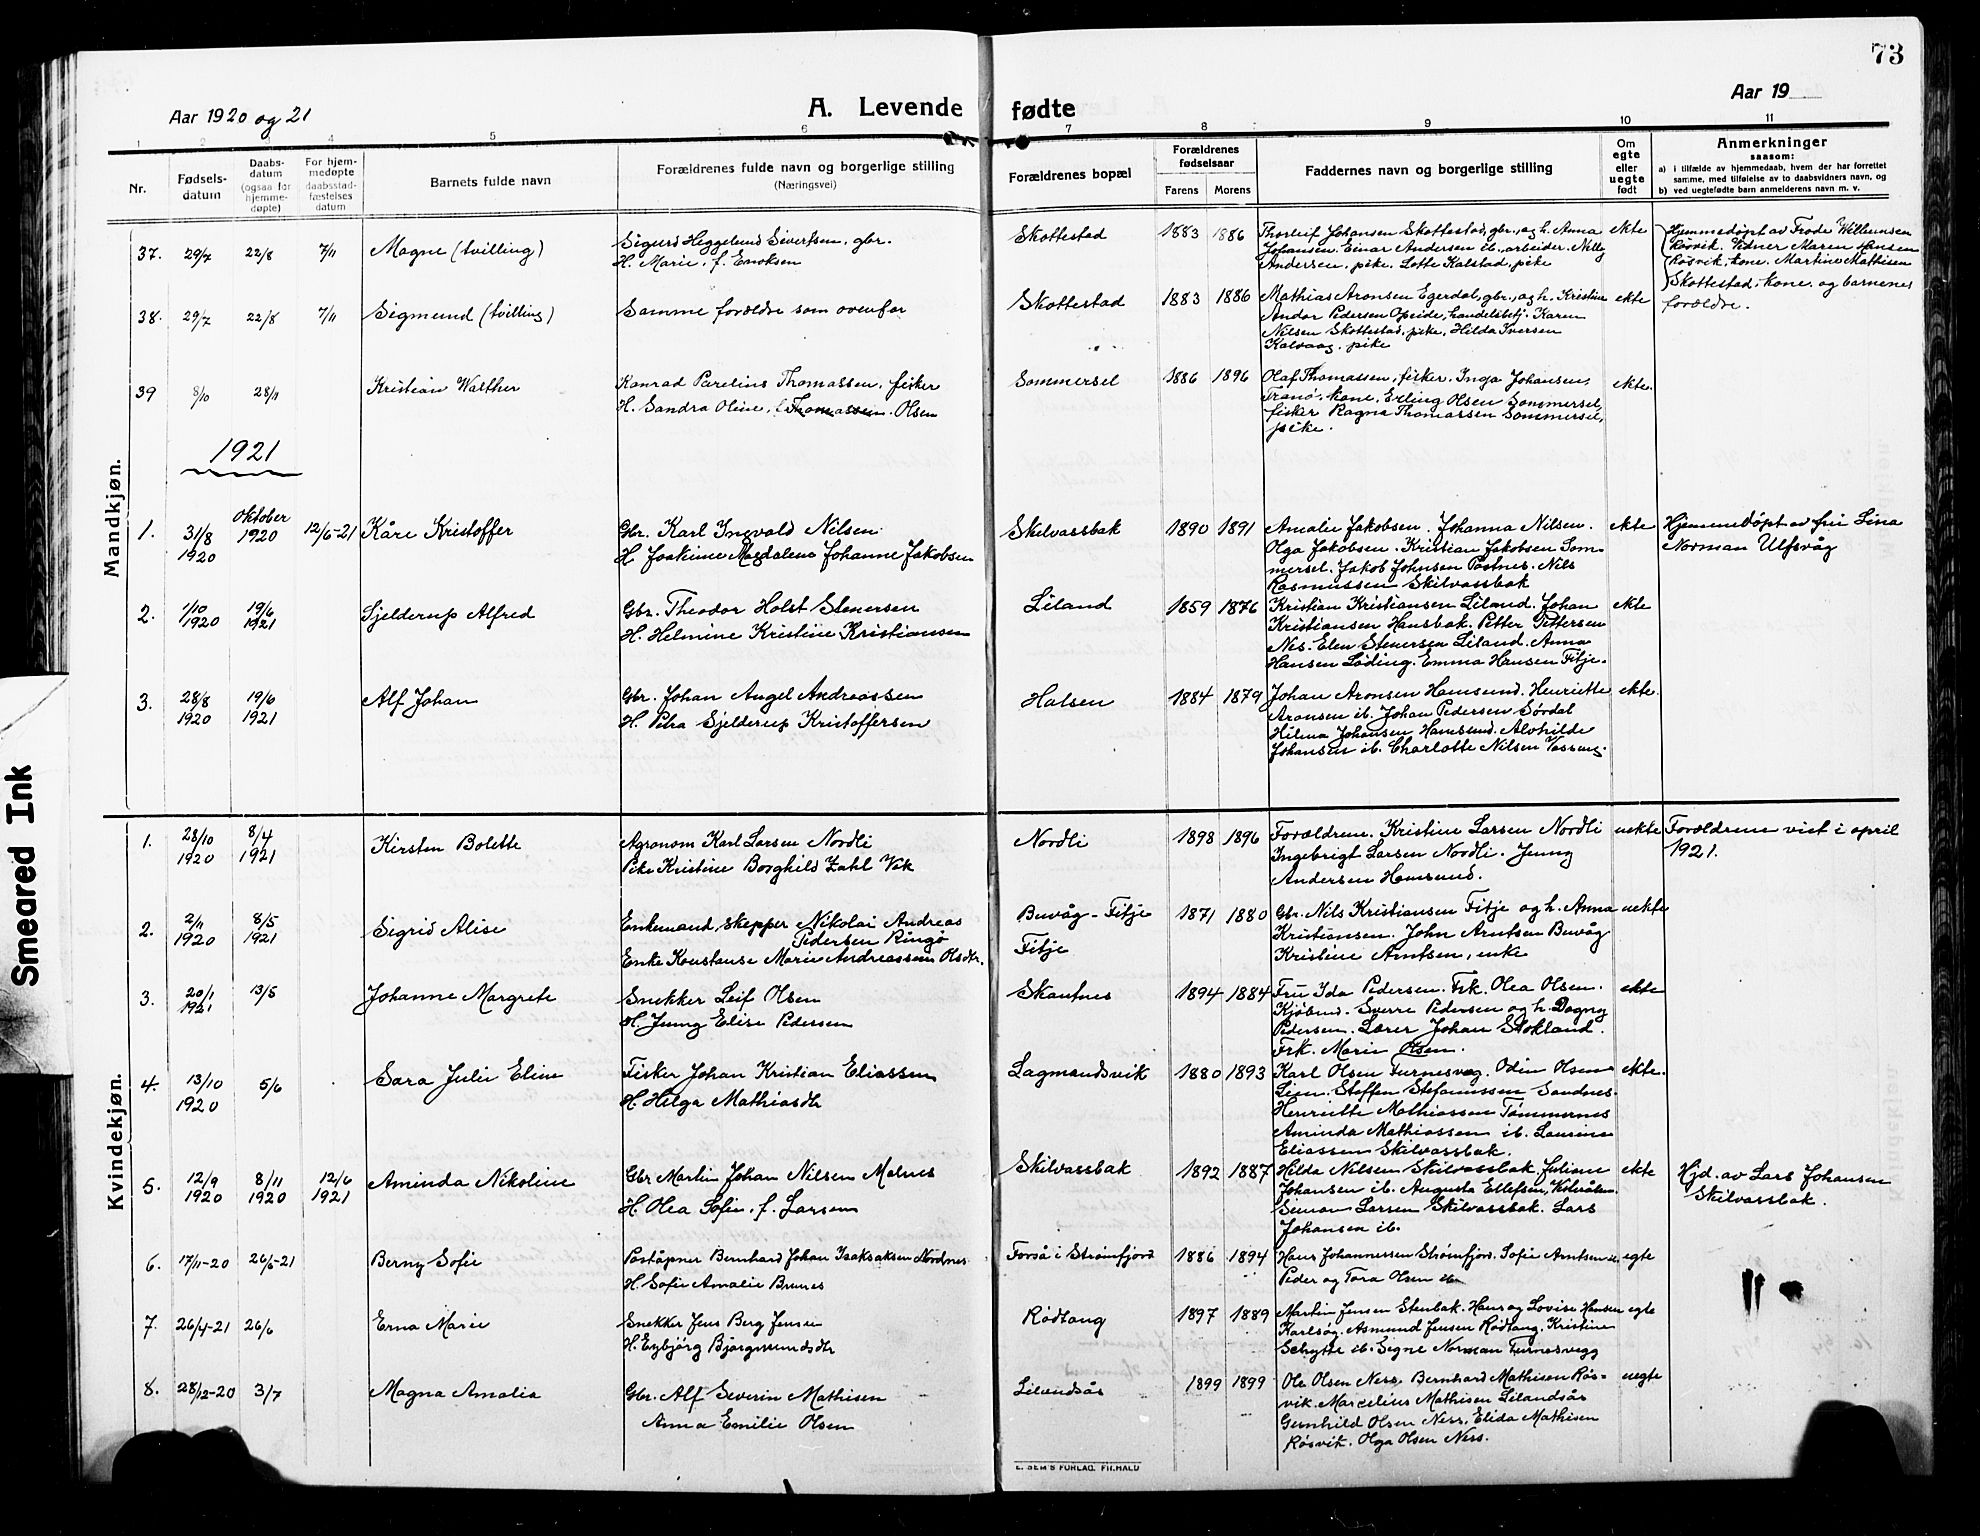 73
Aar 1920 og 21
A. Levende fødte
Aar 19
1 2 3 4 5 6 7 8 9 10 11
Nr.
Fødsels-
datum
Daabs-
datum
(ogsaa for
hjemme-
døpte)
For hjem-
medøpte
daabsstad-
fæstelses
datum
Barnets fulde navn
Forældrenes fulde navn og borgerlige stilling
(Næringsvei)
Forældrenes bopæl
Forældrenes
fødselsaar
Farens Morens
Faddernes navn og borgerlige stilling
Om
egte
eller
uegte
født
Anmerkninger
saasom:
a) i tilfælde av hjemmedaab, hvem der har forrettet
samme, med tilføielse av to daabsvidners navn, og
b) ved uegtefødte barn anmelderens navn m. v.
Mandkjøn.
37. 29/7 22/8 7/11 Magne (tvilling)
Sigurd Heggelund Sivertsen, gbr.
H. Marie, f. Enoksen
Skottestad 1883 1886
Thorleif Johansen Skottestad, gbr., og h. Anna
Johansen. Einar Andersen ib., arbeider. Nelly
Andersen, pike. Lotte Kalstad, pike
ekte
Hjemmedøpt av Frode Wilhumsen
Røsvik. Vidner Maren Hansen
Røsvik, kone. Martine Mathisen
Skottestad, kone. og barnenes
forældre.
38. 29/7 22/8 7/11 Sigmund (tvilling)
Samme forældre som ovenfor
Skottestad 1883 1886
Mathias Aronsen Egerdal, gbr., og h. Kristine
Andor Pedersen Opeide, handelsbetj. Karen
Nilsen Skottestad, pike, Hilda Iversen
Kalvaag, pike
ekte
39 8/10 28/11 Kristian Walther
Konrad Parelius Thomassen, fisker
H. Sandra Oline, f. Thomassen. Olsen
Sommersel 1886 1896
Olaf Thomassen, fisker. Inga Johansen,
Tranø, kone, Erling Olsen Sommersel,
fisker Ragna Thomassen Sommersel,
pike.
ekte.
1921
1. 31/8 1920 oktober 1920 12/6-21 Kåre Kristoffer
Gbr. Karl Ingvald Nilsen
H Joakime Magdalena Johanne Jakobsen
Skilvassbak 1890 1891
Amalie Jakobsen. Johanna Nilsen.
Olga Jakobsen. Kristian Jakobsen Som-
mersel. Jakob Johnsen Postnes. Nils
Rasmussen Skilvassbak
ekte
Hjemmedøpt av fru Lina
Norman Ulfsvåg
2. 1/10 1920 19/6 1921 Sjelderup Alfred
Gbr. Theodor Holst Stenersen
H. Helmine Kristine Kristiansen
Liland 1859 1876
Kristian Kristiansen Liland. Johan
Kristiansen Hansbak. Petter Pettersen
Nes. Elen Stenersen Liland. Anna
Hansen Løding. Emma Hansen Fitje.
ekte
3. 28/8 1920 19/6 1921 Alf Johan
Gbr. Johan Angel Andreassen
H. Petra Sjelderup Kristoffersen
Halsen 1884 1879
Johan Aronsen Hamsund. Henriette
Aronsen ib. Johan Pedersen Sørdal
Hilma Johansen Hamsund. Alvhilde
Johansen ib. Charlotte Nilsen Vasseng.
ekte.
Kvindekjøn.
1. 28/10 1920 8/4 1921 Kirsten Bolette
Agronom Karl Larsen Nordli
Pike Kristine Borghild Zahl Vik
Nordli 1898 1896
Forældrene. Kristine Larsen Nordli
Ingebrigt Larsen Nordli. Jenny
Andersen Hamsund.
uekte
Forældrene viet i april
1921.
2. 2/11 1920 8/5 1921 Sigrid Alise
Enkemand skipper Nikolai Andreas
Pedersen Ringø
Enke Konstanse Marie Andreassen Olsdtr.
Buvåg - Fitje
Fitje
1871 1880
Gbr. Nils Kristiansen Fitje og h. Anna
Kristiansen. John Arntsen Buvåg
Kristine Arntsen, enke
uekte
3. 20/1 1921 13/5 Johanne Margrete
Snekker Leif Olsen
H. Jenny Elise Pedersen
Skautnes 1894 1884
Fru Ida Pedersen. Frk. Olea Olsen.
Kjøbmd. Sverre Pedersen og h. Dagny
Pedersen. Lærer Johan Stokland.
Frk. Marie Olsen.
ekte
4. 13/10 1920 5/6 Sara Julie Eline
Fisker Johan Kristian Eliassen
H. Helga Mathiasdtr
Lagmandsvik 1880 1893
Karl Olsen Furnesveg. Odin Olsen
Lien. Steffen Stefanussen Sandnes.
Henriette Mathiassen Tømmernes
Aminda Mathiassen ib. Laurine
Eliassen Skilvassbak.
ekte.
5. 12/9 1920 8/11 1920 12/6 1921 Aminda Nikoline
Gbr Martin Johan Nilsen Malnes
H. Olea Sofie, f. Larsen
Skilvassbak 1892 1887
Hilda Nilsen Skilvassbak. Juliane
Johansen ib. Augusta Ellefsen,
Simon Larsen Skilvassbak. Lars
Johansen ib.
ekte
Hjd. av Lars Johansen
Skilvassbak.
6. 17/11-20 26/5-21 Berny Sofie
Poståpner Bernhard Johan Isaksaksen Nordnes
H. Sofie Amalie Brunes
Forså i Strømfjord 1886 1894
Hans Johannessen Strømfjord. Sofie Arntsen ib.
Peder og Tora Olsen ib
egte
7. 26/4-21 26/6 Erna Marie
Snekker Jens Berg Jensen
H. Eybjörg Bjargmundsdtr
Rødtang 1897 1889
Martin Jensen Stenbak. Hans og Lovise Hansen
Karlsøg. Asmund Jensen Rødtang. Kristine
Schytte ib. Signe Norman Furnesvegg
egte
8. 28/12-20 3/7 Magna Amalia
Gbr. Alf Severin Mathisen
Anna Emilie Olsen
Lilandsås 1899 1899
Ole Olsen Ness. Bernhard Mathisen Røs-
vik. Marcelius Mathisen Lilandsås
Gunhild Olsen Ness, Elida Mathisen
Røsvik. Olga Olsen Ness.
uegte
E. SEM'S FORLAG, FR.HALD
Smeared Ink